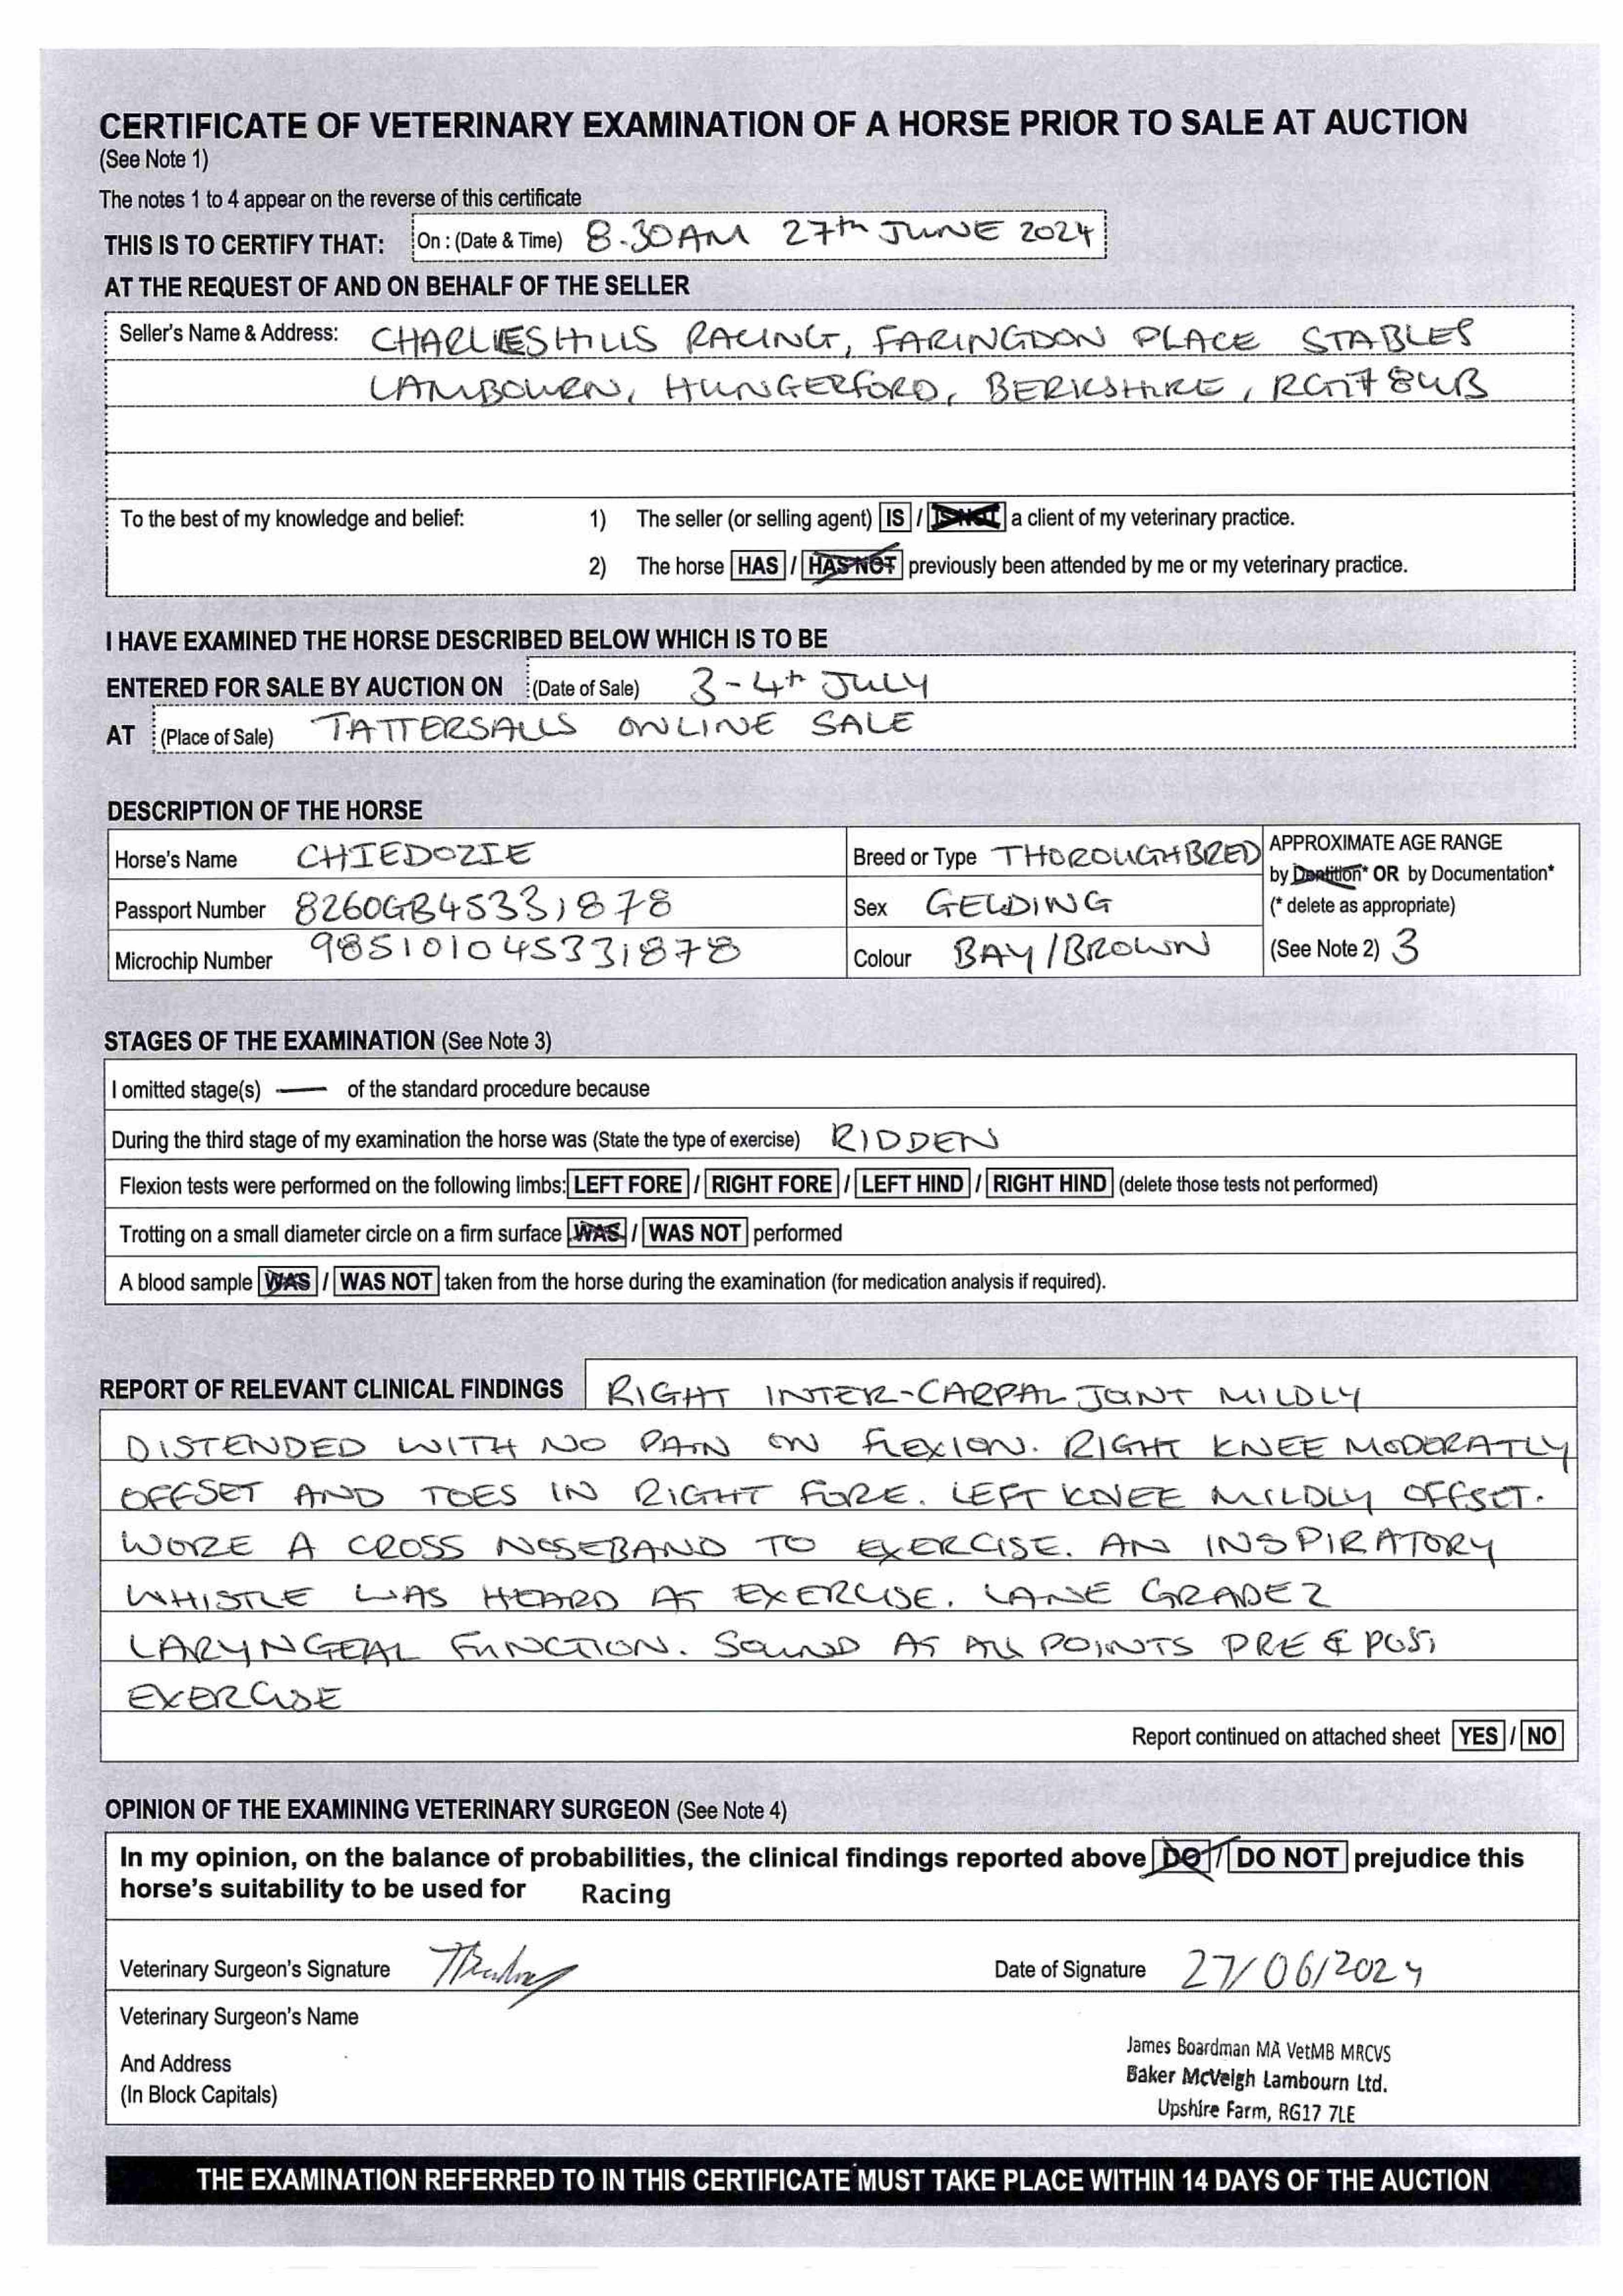 CERTIFICATE OF VETERINARY EXAMINATION OF A HORSE PRIOR TO SALE AT AUCTION
(See Note 1)
The notes 1 to 4 appear on the reverse of this certificate
THIS IS TO CERTIFY THAT: On : (Date & Time) 8.30AM 27th JUNE 2024
AT THE REQUEST OF AND ON BEHALF OF THE SELLER
Seller's Name & Address: CHARLIES HILLS RACING, FARINGDON PLACE STABLES
LAMBOURN, HUNGERFORD, BERKSHIRE, RG17 8UB
To the best of my knowledge and belief: 1) The seller (or selling agent) IS / IS NOT a client of my veterinary practice.
2) The horse HAS / HAS NOT previously been attended by me or my veterinary practice.
I HAVE EXAMINED THE HORSE DESCRIBED BELOW WHICH IS TO BE
ENTERED FOR SALE BY AUCTION ON (Date of Sale) 3-4th JULY
AT (Place of Sale) TATTERSALLS ONLINE SALE
DESCRIPTION OF THE HORSE
Horse's Name CHIEDOZIE Breed or Type THOROUGHBRED APPROXIMATE AGE RANGE
by Dentition* OR by Documentation*
Passport Number 8260GB45331878 Sex GELDING (* delete as appropriate)
Microchip Number 985101045331878 Colour BAY/BROWN (See Note 2) 3
STAGES OF THE EXAMINATION (See Note 3)
I omitted stage(s) — of the standard procedure because
During the third stage of my examination the horse was (State the type of exercise) RIDDEN
Flexion tests were performed on the following limbs: LEFT FORE / RIGHT FORE / LEFT HIND / RIGHT HIND (delete those tests not performed)
Trotting on a small diameter circle on a firm surface WAS / WAS NOT performed
A blood sample WAS / WAS NOT taken from the horse during the examination (for medication analysis if required).
REPORT OF RELEVANT CLINICAL FINDINGS RIGHT INTER-CARPAL JOINT MILDLY
DISTENDED WITH NO PAIN ON FLEXION. RIGHT KNEE MODERATLY
OFFSET AND TOES IN RIGHT FORE. LEFT KNEE MILDLY OFFSET.
WORE A CROSS NOSEBAND TO EXERCISE. AN INSPIRATORY
WHISTLE WAS HEARD AT EXERCISE. LANE GRADE 2
LARYNGEAL FUNCTION. SOUND AT ALL POINTS PRE & POST
EXERCISE
Report continued on attached sheet YES / NO
OPINION OF THE EXAMINING VETERINARY SURGEON (See Note 4)
In my opinion, on the balance of probabilities, the clinical findings reported above DO / DO NOT prejudice this
horse's suitability to be used for Racing
Veterinary Surgeon's Signature Date of Signature 27/06/2024
Veterinary Surgeon's Name
And Address
(In Block Capitals)
James Boardman MA VetMB MRCVS
Baker McVeigh Lambourn Ltd.
Upshire Farm, RG17 7LE
THE EXAMINATION REFERRED TO IN THIS CERTIFICATE MUST TAKE PLACE WITHIN 14 DAYS OF THE AUCTION